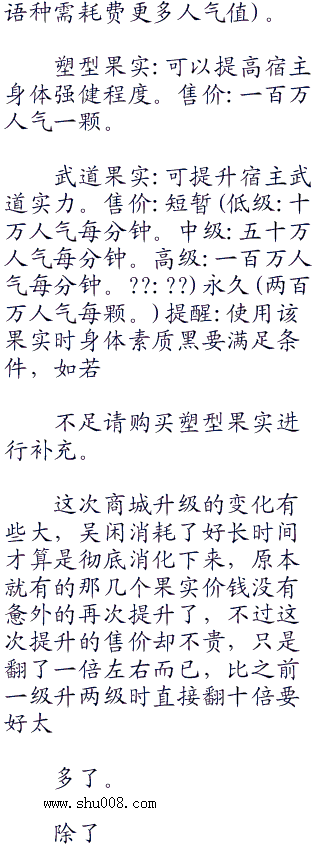 语种需耗费更多人气值)。
塑型果实:可以提高宿主
身体强健程度。售价:一百万
人气一颗。
武道果实:可提升宿主武
道实力。售价:短暂(低级:十
万人气每分钟。中级:五十万
人气每分钟。高级:一百万人
气每分钟。??:??)永久(两百
万人气每颗。)提醒:使用该
果实时身体素质黑要满足条
件，如若
不足请购买塑型果实进
行补充。
这次商城升级的变化有
些大，吴闲消耗了好长时间
才算是彻底消化下来，原本
就有的那几个果实价钱没有
惫外的再次提升了，不过这
次提升的售价却不贵，只是
翻了一倍左右而已，比之前
一级升两级时直接翻十倍要
好太
多了。
www.shu008.com
除了